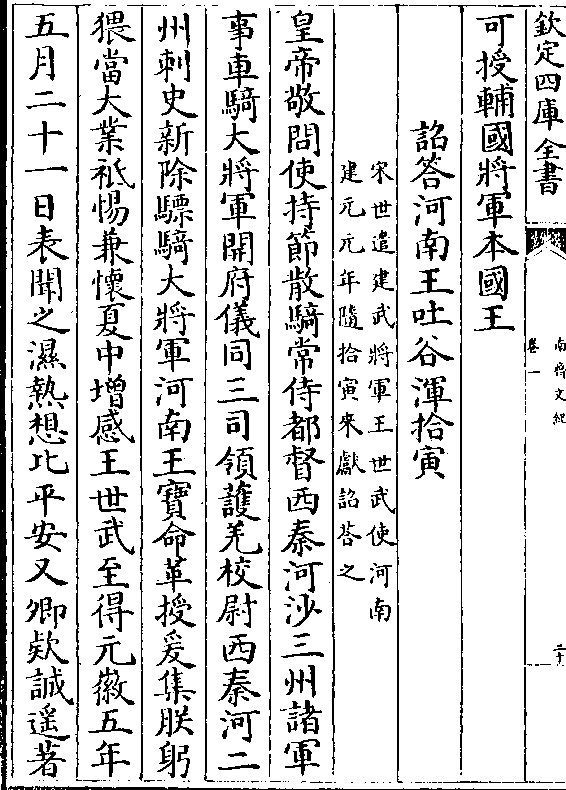 欽定四庫全書
南齊文紀
卷一
二十
可授輔國將軍本國王
詔答河南王吐谷渾拾寅
宋世遣建武將軍王世武使河南
建元元年隨拾寅來獻詔答之
皇帝敬問使持節散騎常侍都督西秦河沙三州諸軍
事車騎大將軍開府儀同三司領護羌校尉西秦河二
州刺史新除驃騎大將軍河南王寶命革授爰集朕躬
猥當大業祗惕兼懷夏中增感王世武至得元徽五年
五月二十一日表聞之濕熱想比平安又卿款誠遥著